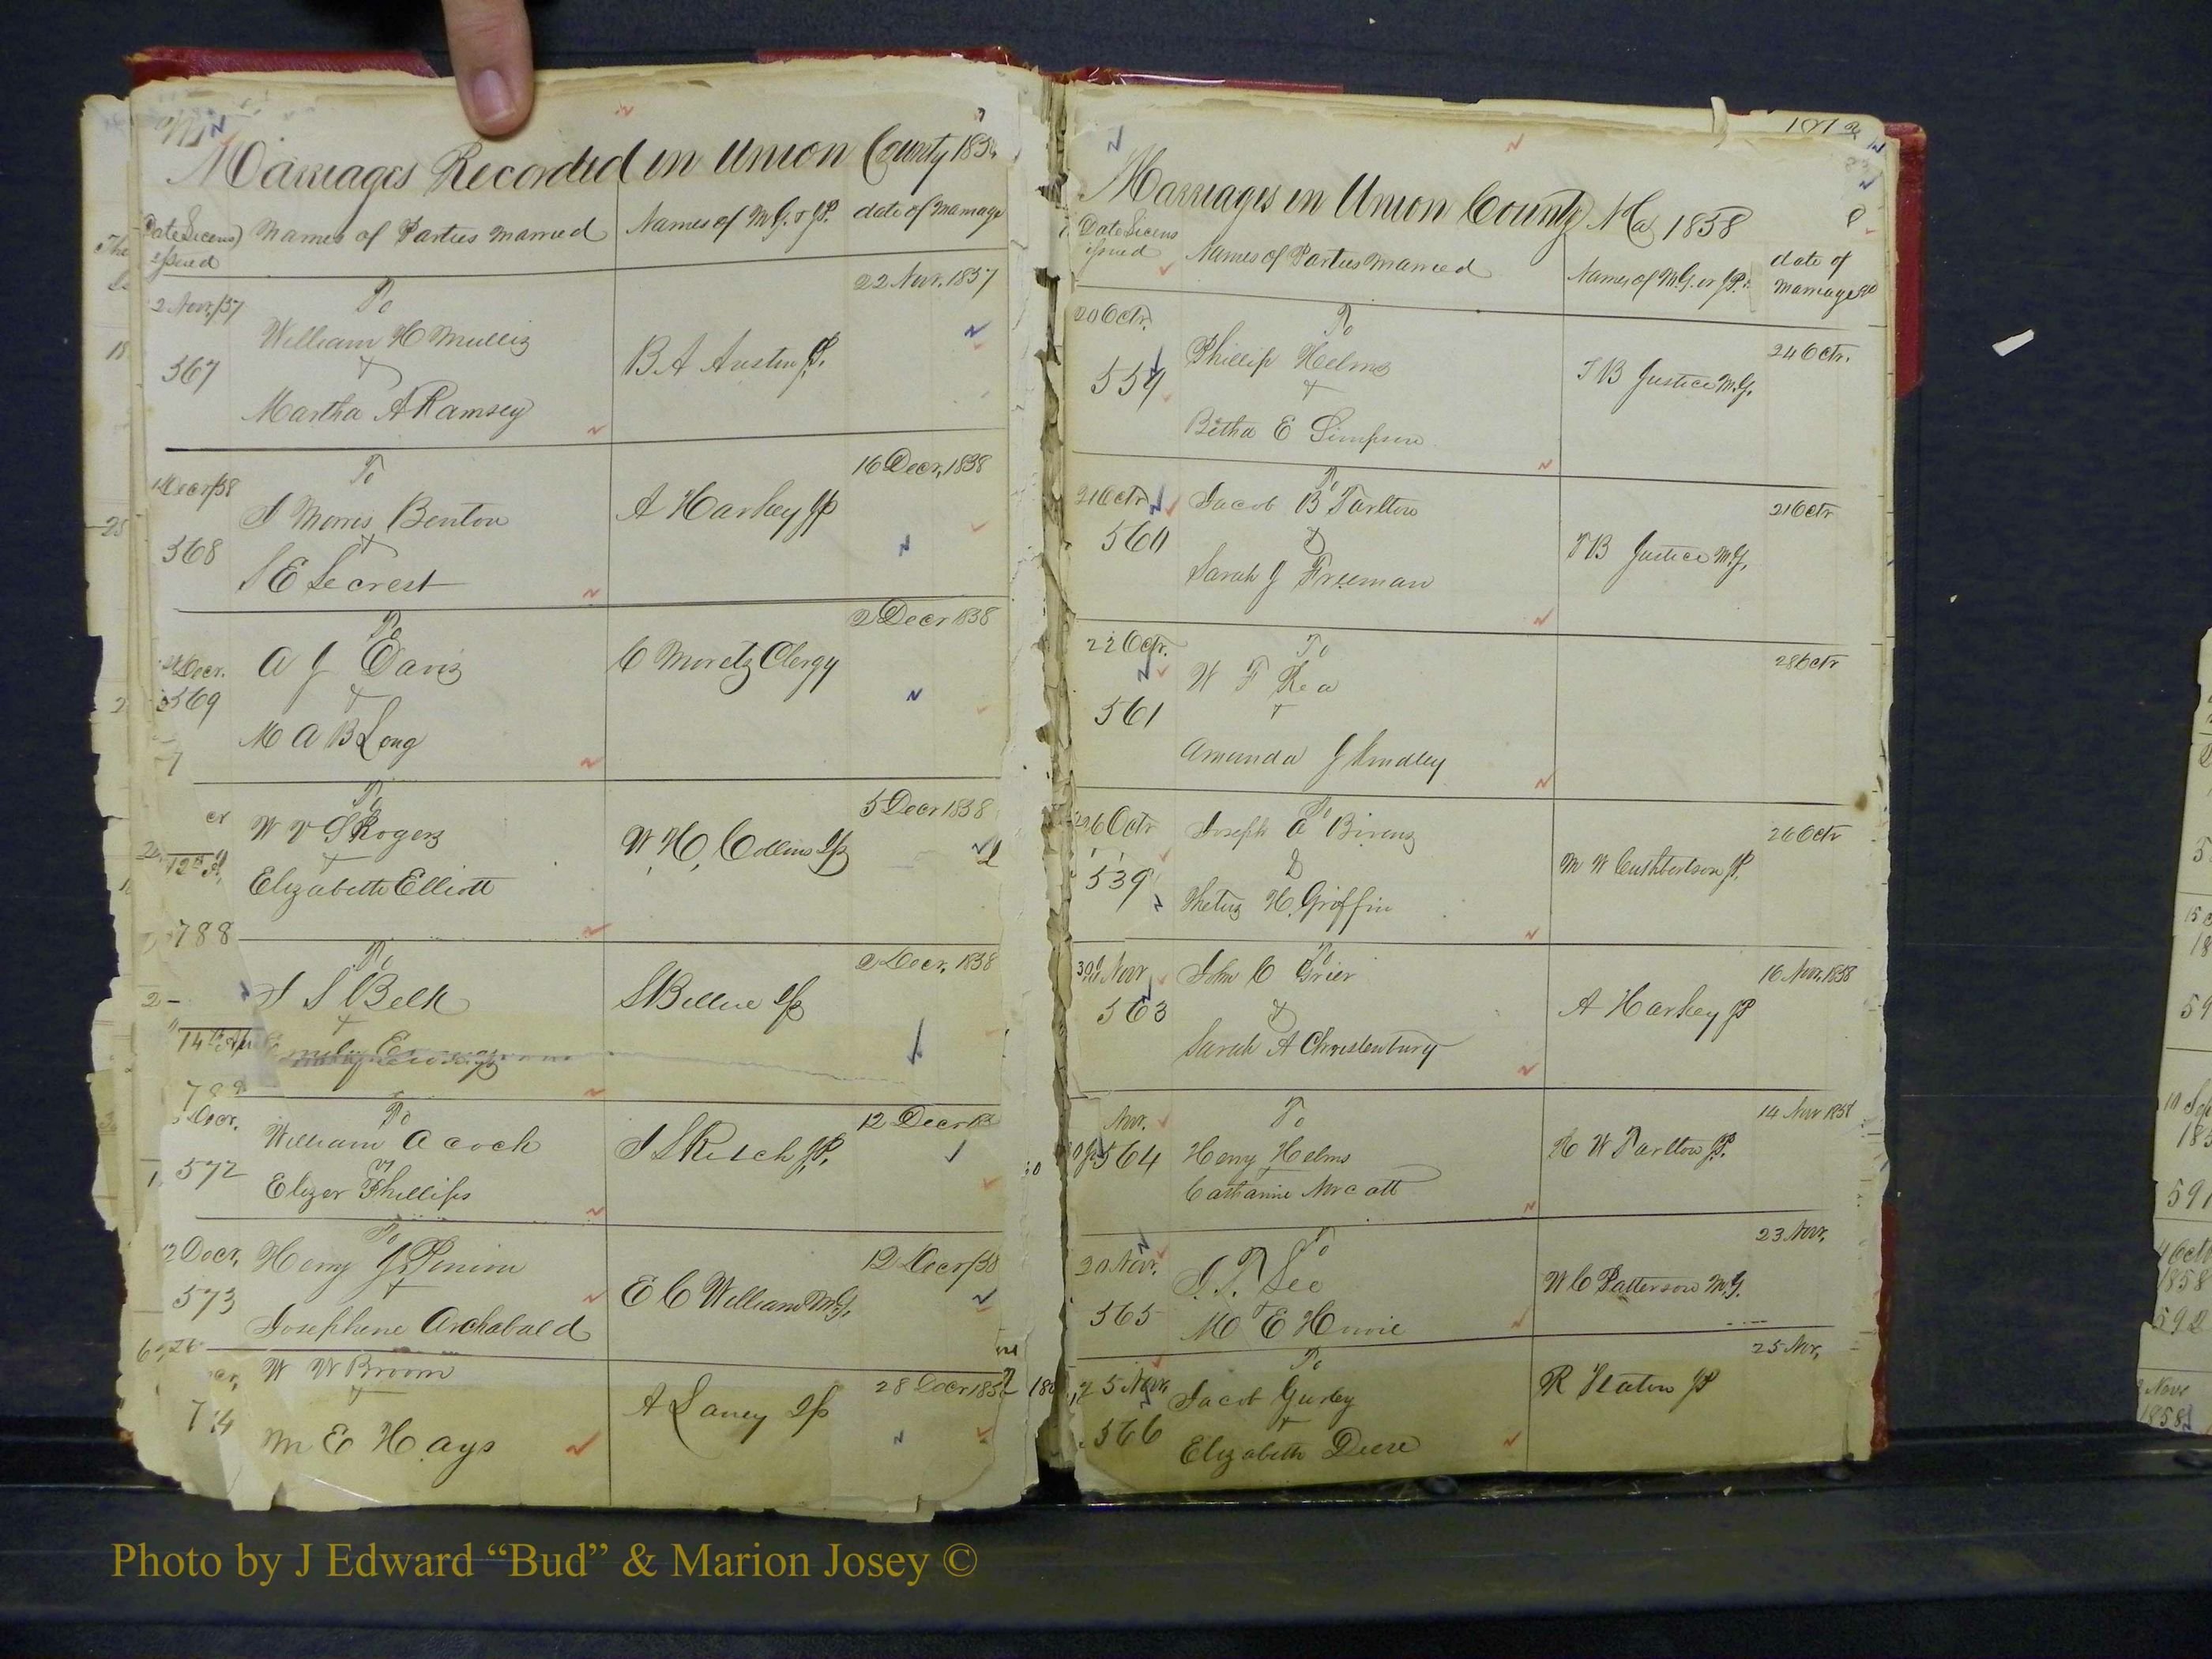 Marriages Recorded in Union County 185
Date Licens issued
Names of Parties Married
Names of M.G. & J.P.
date of Marriage
2 Novr./57
To
22 Novr. 1857
William H Mullis
&
B A Austin J.P.
367
Martha A Ramsey
To
16 Decr. 1858
Decr/58
J Morris Benton
&
A Harkey JP
568
S E Secrest
To
2 Decr 1858
Decr.
A J Davis
&
C Moretz Clergy
569
M A B Long
To
5 Decr 1858
W V S Rogers
&
W. H. Collins JP
Elizabeth Elliott
788
To
2 Decr. 1858
J S Belk
&
S Bellue JP
14th
Decr.
To
12 Decr
William Acock
J S Reitch J.P.
572
Elizer Phillips
2 Decr.
To
12 Decr/58
Henry J Penion
&
E C Williams M.G.
573
Josephine Archabald
W W Broom
&
28 Decr 185
A Laney JP
M E Hays
Marriages in Union County No 1858
Date Licens issued
Names of Parties Married
Names of M.G. or J.P.
date of Marriage
20 Octr.
To
24 Octr.
Phillip Helms
&
J B Justice M.G.
559
Betha E Simpson
21 Octr
To
21 Octr
Jacob B Tarlton
&
J B Justice M.G.
560
Sarah J Freeman
22 Octr.
To
28 Octr
W F Rea
&
561
Amanda J
26 Octr
To
26 Octr
Joseph A Bivens
&
M W Cuthbertson J.P.
539
Thetus H. Griffin
Novr
To
16 Novr. 1858
John C Grier
&
A Harkey JP
563
Sarah A Christenbury
Nov.
To
14 Novr 1858
564
Henry Helms
&
H W Tarlton J.P.
Catharine
20 Novr.
To
23 Novr.
J. T. Lee
&
W C Patterson M.G.
565
M E Howie
To
25 Nov.
5 Novr.
Jacob Gurley
&
R Staton JP
566
Elizabeth Deese
Photo by J Edward “Bud” & Marion Josey ©